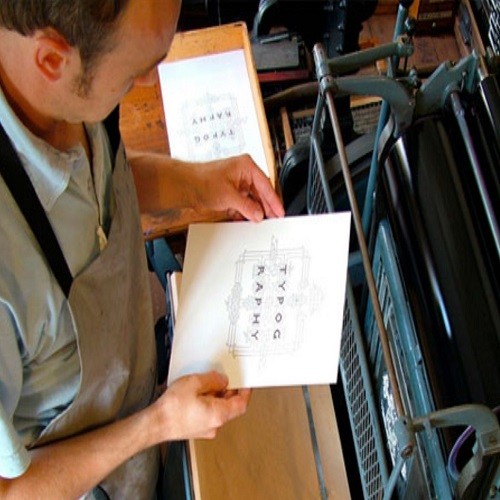 TYPOG
RAPHY
TYPOG
RAPHY